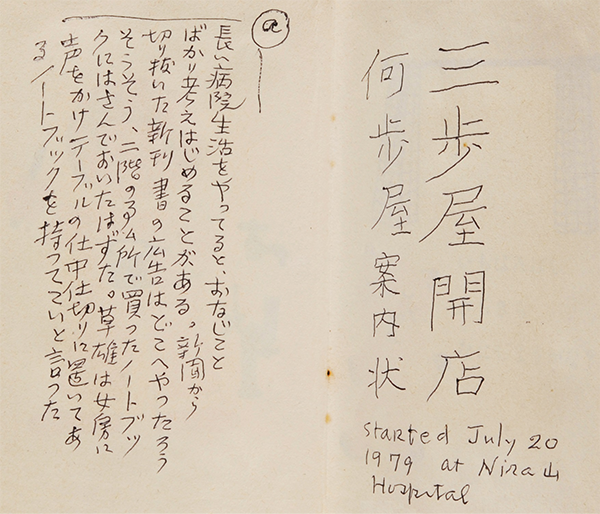 三歩屋開店
何歩屋案内状
started July 20
1979 at Nira山
Hospital
ⓐ
長い病院生活をやってると、おなじこと
ばかり考えはじめることがある。新聞から
切り抜いた新刊書の広告はどこへやったろう
そうそう、二階の所で買ったノートブッ
クにはさんでおいたはずだ。草雄は女房に
声をかけテーブルの仕中仕切りに置いてあ
るノートブックを持ってこいと言った